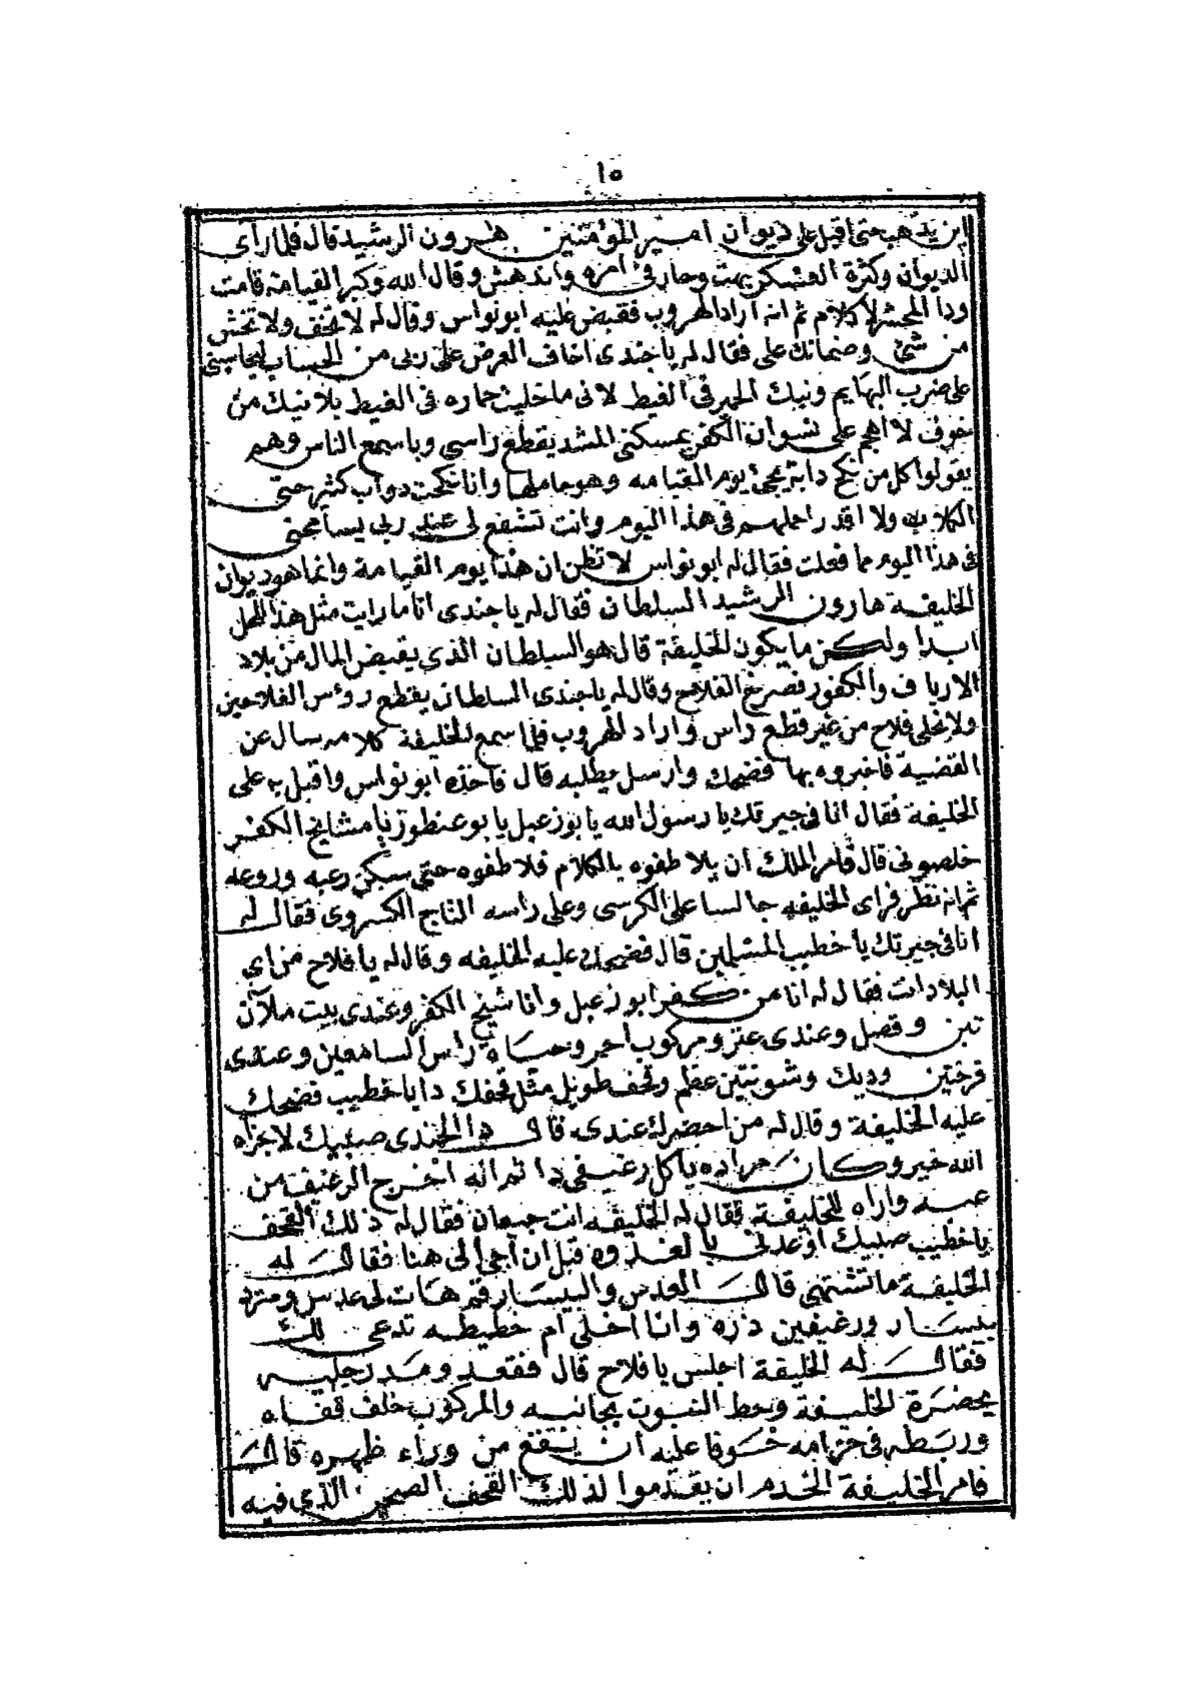 ١٥
اين يذهب حتى اقبل على ديوان امير المؤمنين هرون الرشيد قال فلما رأى
الديوان وكثرة العسكر بهت وحار فى امره واندهش وقال الله وكبر القيامة قامت
ودا المحشر لا كلام ثم انه اراد الهروب فقبض عليه ابو نواس وقال له لا تخف ولا تخش
من شئ وضمانك على فقال له يا جندى اخاف العرض على ربى من الحساب ليحاسبنى
على ضرب البهايم ونيك الحمير فى الغيط لانى ما خليت حماره فى الغيط بلا نيك من
خوفى لا اهجم على نسوان الكفر يمسكنى المشد يقطع راسي وباسمع الناس وهم
يقولوا كل من نكح دابة يجئ يوم القيامه وهو حاملها وانا نكحت دواب كثير حتى
الكلاب ولا اقدر احملهم فى هذا اليوم وانت تشفع لى عند ربى يسامحنى
فى هذا اليوم مما فعلت فقال له ابو نواس لا تظن ان هذا يوم القيامة وانما هو ديوان
الخليفة هارون الرشيد السلطان فقال له يا جندى انا ما رايت مثل هذا المحل
ابدا ولكن ما يكون الخليفة قال هو السلطان الذي يقبض المال من بلاد
الارياف والكفور فصرخ الفلاح وقال له يا جندى السلطان يقطع روس الفلاحين
ولا يخلى فلاح من غير قطع راس واراد الهروب فلما سمع الخليفة كلامه سال عن
القضية فاخبروه بها فضحك وارسل يطلبه قال فاخذه ابو نواس واقبل به على
الخليفة فقال انا فى جيرتك يا رسول الله يا بو زعبل يا بو عنطوز يا مشايخ الكفر
خلصونى قال فامر الملك ان يلاطفوه بالكلام فلاطفوه حتى سكن رعبه وروعه
ثم انه نظر فراى الخليفه جالسا على الكرسى وعلى راسه التاج الكسروى فقال له
انا فى جيرتك يا خطيب المسلمين قال فضحك عليه الخليفه وقال له يا فلاح من اي
البلاد انت فقال له انا من كفر ابو زعبل وانا شيخ الكفر وعندى بيت ملآن
تبن وقصل وعندى عنز ومركوب احمر وحساة راس السامعين وعندى
فرختين وديك وشونتين عظم وقحف طويل مثل قحفك دا يا خطيب فضحك
عليه الخليفة وقال له من احضرك عندى قال دا الجندى صبيك لا جزاه
الله خير وكان مراده ياكل رغيفى دا ثم انه اخرج الرغيف من
عبه واراه للخليفة فقال له الخليفه انت جيعان فقال له ذلك القحف
يا خطيب صبيك اوعدنى بالغدوه قبل ان اجى الى هنا فقال له
الخليفة ما تشتهى قال العدس والبيسار قم هات لى عدس ومترد
بيسار ورغيفين دره وانا اخلى ام خطيطه تدعى لك
فقال له الخليفة اجلس يا فلاح قال فقعد ومد رجليه
بحضرة الخليفة وحط النبوت بجانبه والمركوب خلف قفاه
وربطه فى حزامه خوفا عليه ان يقع من ورآء ظهره قال
فامر الخليفة الخدم ان يقدموا لذلك القحف الصحن الذي فيه